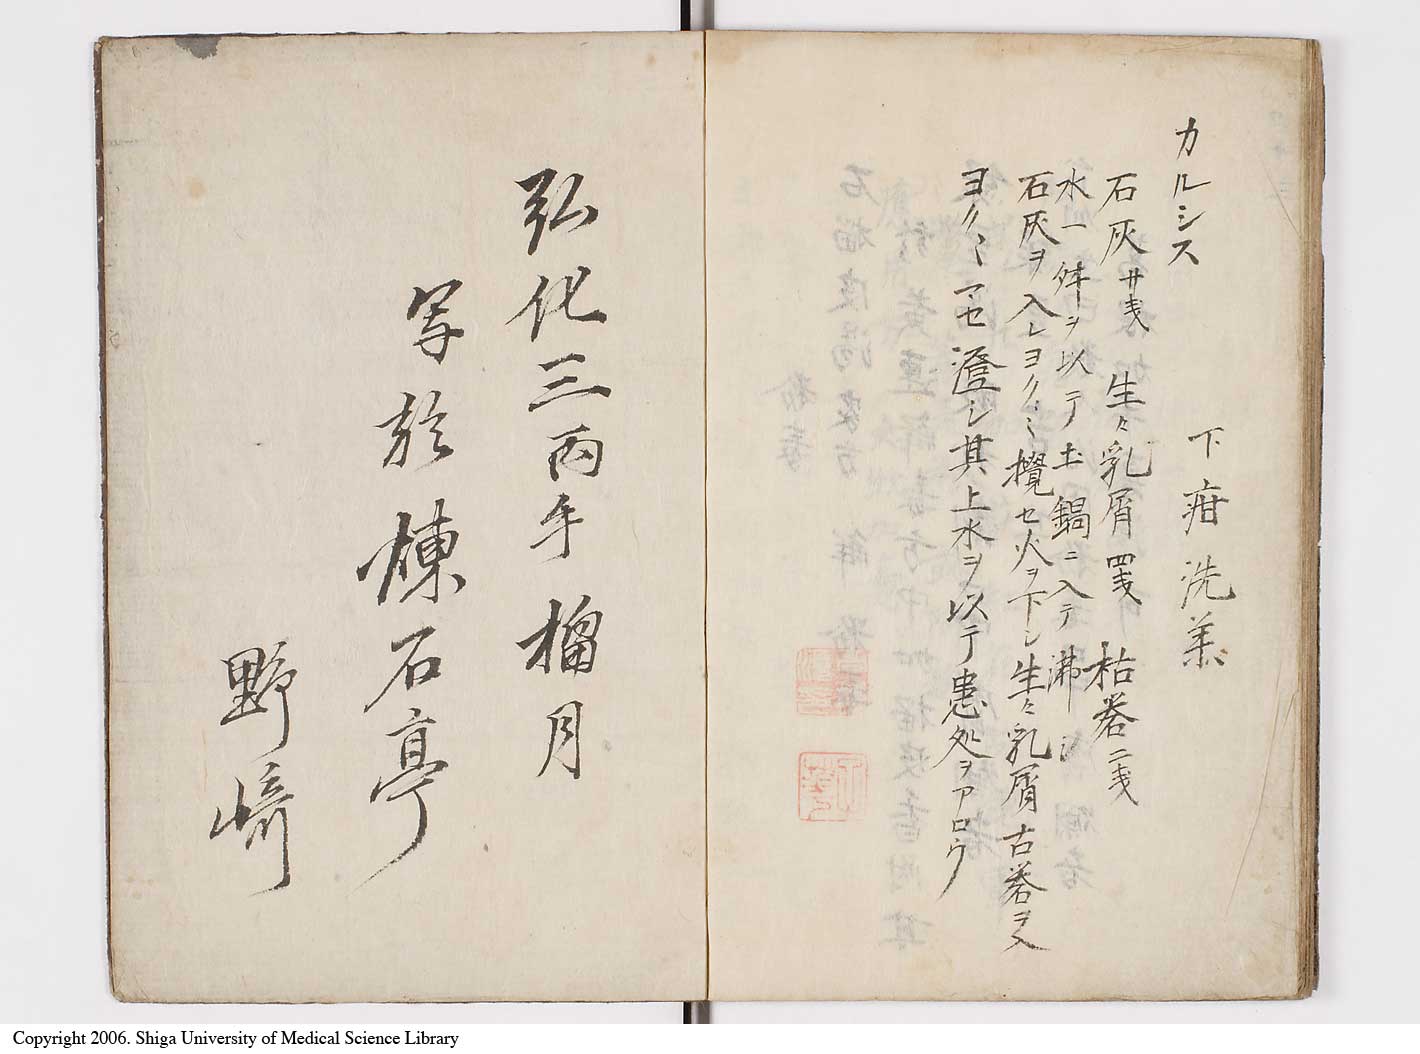 カルシス 下疳洗薬
石灰廿戔 生々乳屑四戔 枯礬二戔
水一舛ヲ以テ土鍋ニ入テ沸シ
石灰ヲ入レヨク〱攪セ火ヲ下シ生々乳屑古礬ヲ入
ヨク〱マセ澄シ其上水ヲ以テ患処ヲアロウ
弘化三丙午榴月
写於煉石亭
野﨑
Copyright 2006. Shiga University of Medical Science Library